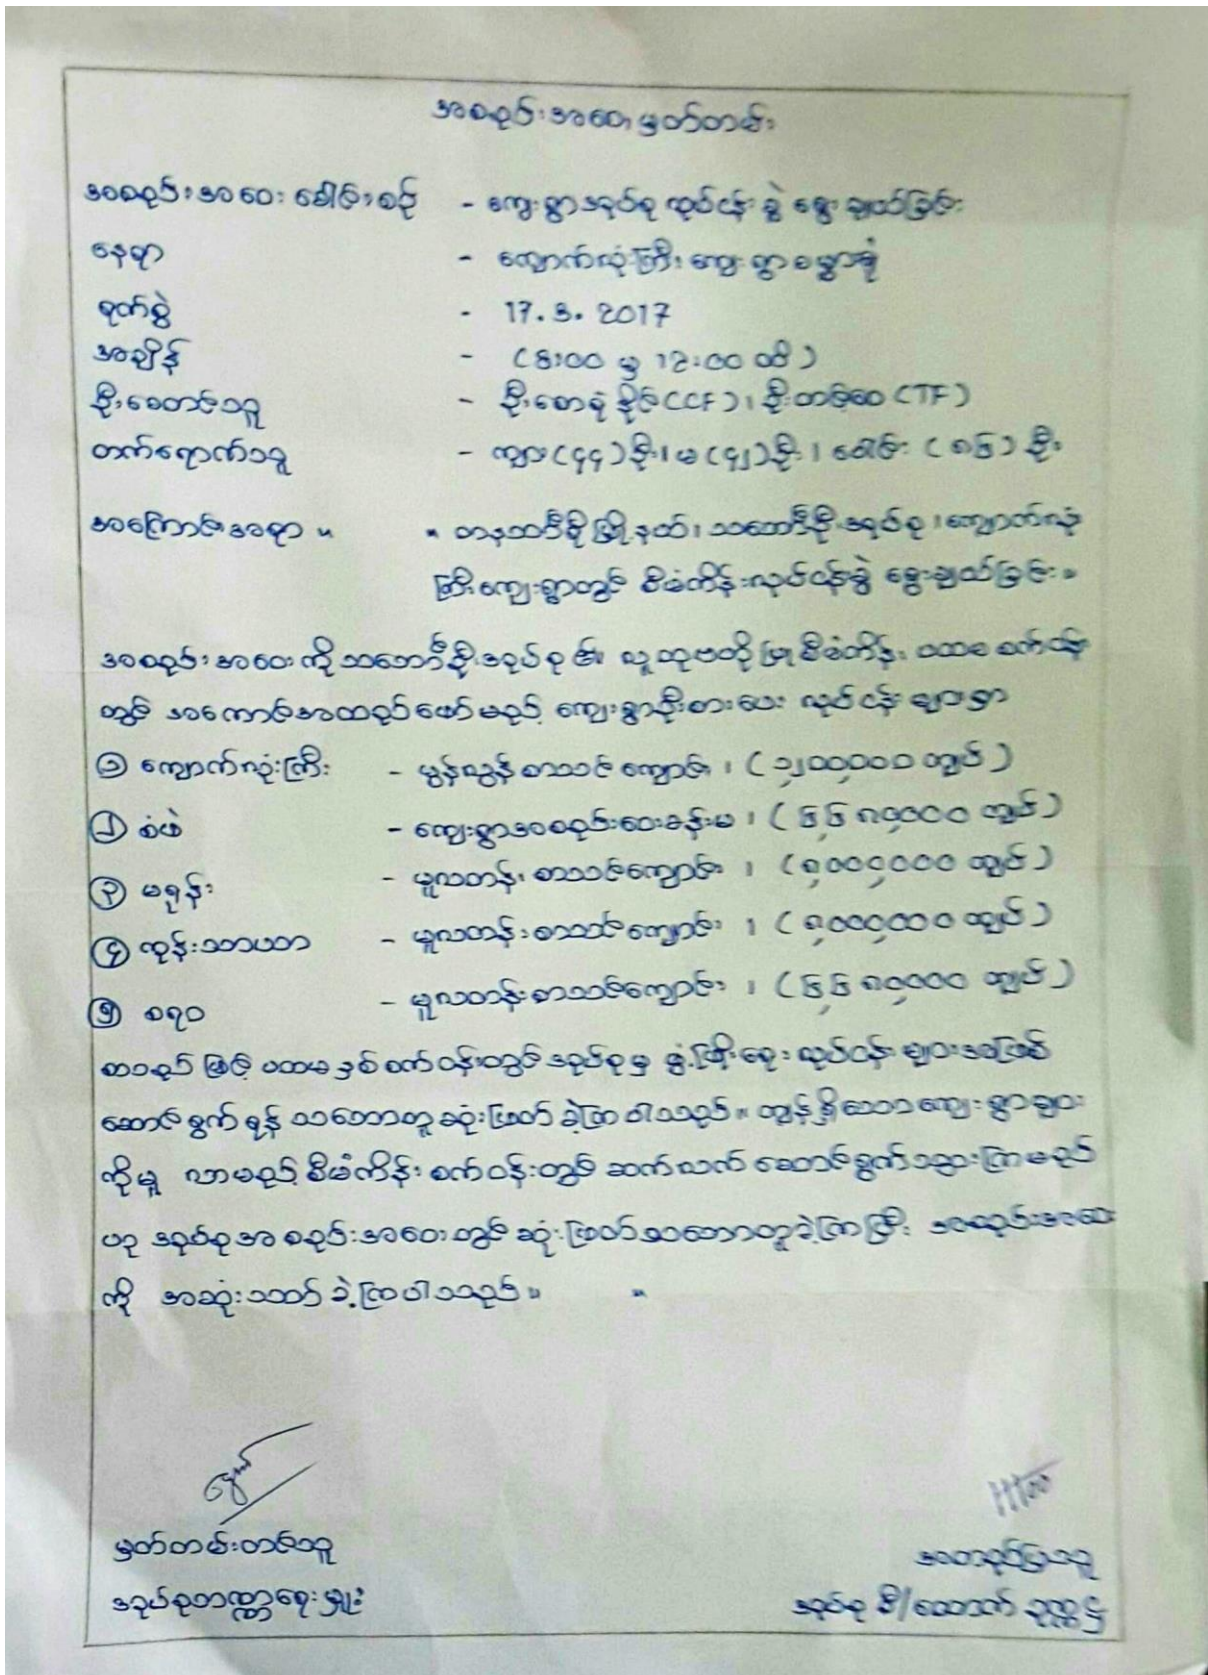 အစည်းအဝေးမှတ်တမ်း
အစည်းအဝေးခေါင်းစဉ် - ကျေးရွာအုပ်စုလုပ်ငန်းခွဲရွေးချယ်ခြင်း
နေရာ - ကျောက်လုံးကြီးကျေးရွာစမ္မာရုံ
ရက်စွဲ - 17.3.2017
အချိန် - (8:00 မှ 12:00 ထိ)
ဦးဆောင်သူ - ဦးစောရဲနိုင်(CCF)၊ ဦးတင့်ဆေ(TF)
တက်ရောက်သူ - ကျား(၄၄)ဦး၊ မ(၄၂)ဦး၊ ပေါင်း (၈၆)ဦး
အကြောင်းအရာ။ ။ တနင်္သာရီမြို့နယ်၊ သဘော်ဦးအုပ်စု၊ ကျောက်လုံး
ကြီးကျေးရွာတွင် စီမံကိန်းလုပ်ငန်းခွဲ ရွေးချယ်ခြင်း။
အစည်းအဝေးကို သဘော်ဦးအုပ်စု၏ လူထုဗဟိုပြုစီမံကိန်း ပထမစက်ဝန်း
တွင် အကောင်အထည်ဖော်မည့် ကျေးရွာဦးစားပေး လုပ်ငန်းများမှာ
① ကျောက်လုံးကြီး - မွန်လွန်စာသင်ကျောင်း၊ (၁၂၀၀၀၀၀ ကျပ်)
② စံဖဲ - ကျေးရွာအစည်းဝေးခန်းမ၊ (၆၆၈၀၀၀၀ ကျပ်)
③ မရန်း - မူလတန်းစာသင်ကျောင်း၊ (၈၀၀၀၀၀၀ ကျပ်)
④ ကုန်းသာယာ - မူလတန်းစာသင်ကျောင်း၊ (၈၀၀၀၀၀၀ ကျပ်)
⑤ စရဝ - မူလတန်းစာသင်ကျောင်း၊ (၆၆၈၀၀၀၀ ကျပ်)
စာသည်ဖြင့် ပထမနှစ်စက်ဝန်းတွင် အုပ်စုမှ ဖွံ့ဖြိုးရေး လုပ်ငန်းများအဖြစ်
ဆောင်ရွက်ရန် သဘောတူဆုံးဖြတ်ခဲ့ကြပါသည်။ ကျန်ရှိသောကျေးရွာများ
ကိုမူ လာမည့်စီမံကိန်းစက်ဝန်းတွင် ဆက်လက်ဆောင်ရွက်သွားကြမည်
ဟု အုပ်စုအစည်းအဝေးတွင် ဆုံးဖြတ်သဘောတူခဲ့ကြပြီး အစည်းအဝေး
ကို အဆုံးသတ်ခဲ့ကြပါသည်။ ။
မှတ်တမ်းတင်သူ
အုပ်စုဘဏ္ဍာရေးမှူး
အတည်ပြုသူ
အုပ်စု စီ/ထောက် ဥက္ကဋ္ဌ